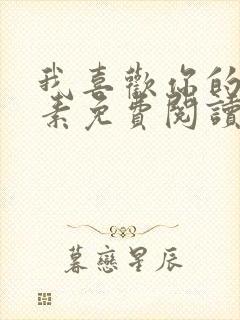 我喜歡你的
素免費閱讀
暮戀星辰